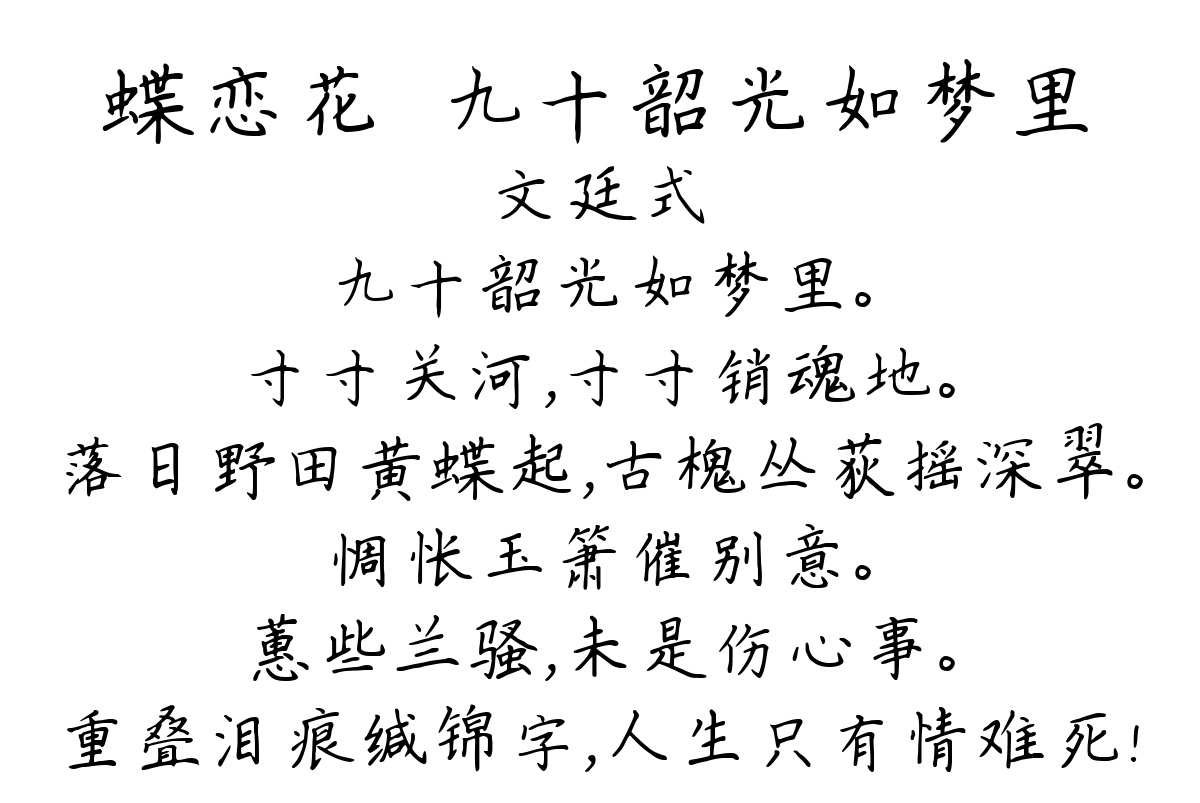 蝶恋花 九十韶光如梦里
文廷式
九十韶光如梦里。
寸寸关河,寸寸销魂地。
落日野田黄蝶起,古槐丛荻摇深翠。
惆怅玉箫催别意。
蕙些兰骚,未是伤心事。
重叠泪痕缄锦字,人生只有情难死!